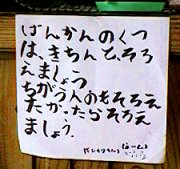 げんかんのくつ
は、きちんと、そろ
えましょう
ちがう人のもそろえ
たかったらそろえ
ましょう。